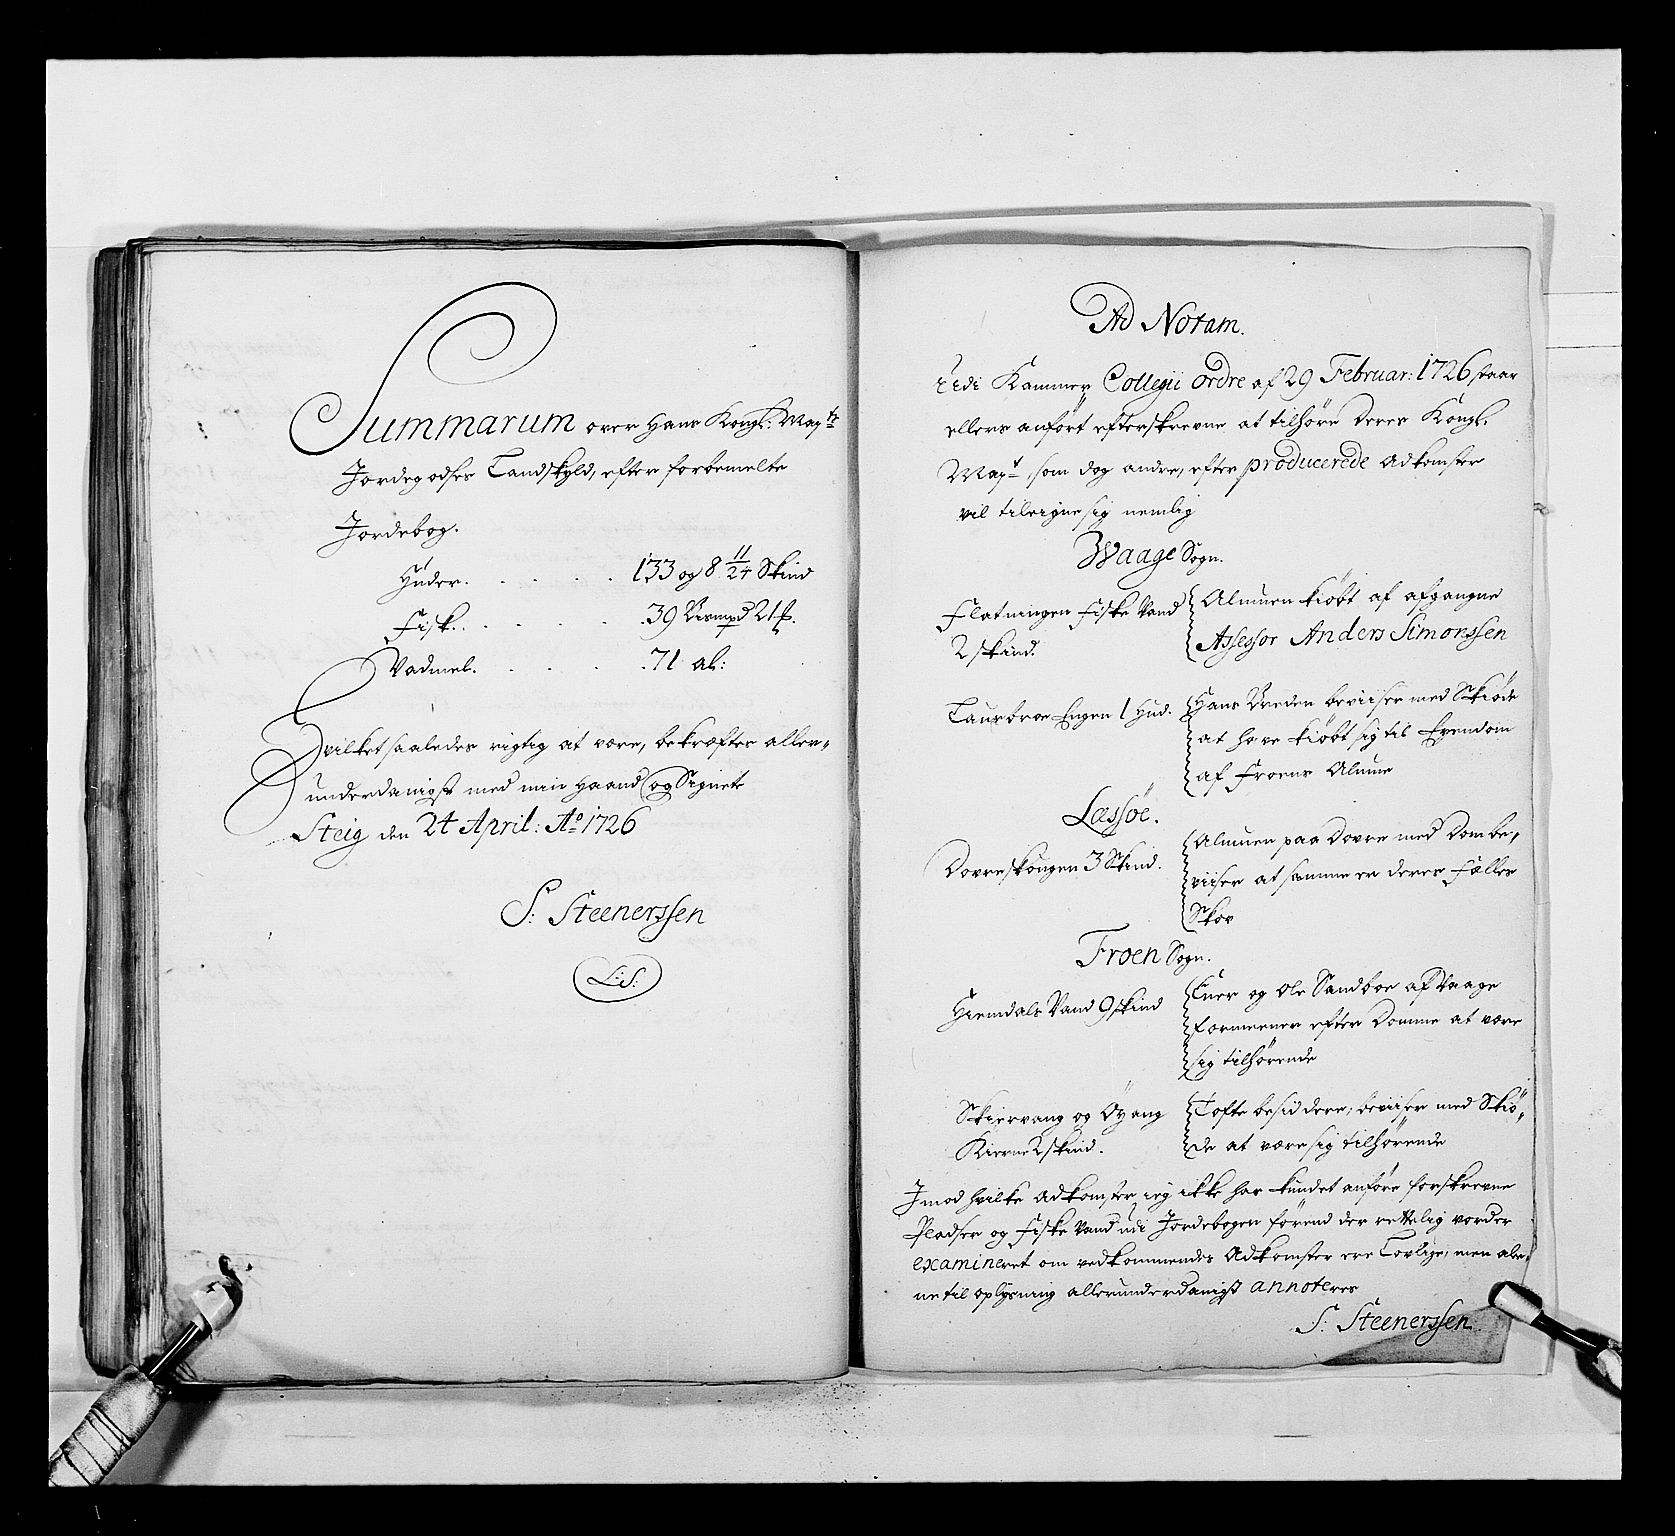 Summarum over Hans Kongl: Mayts
Jordegodses Landskyld, efter forbemelte
Jordebog.
Huder. . . . . . 133 og 8 11/24 Skind
Fisk. . . . . . 39 Bismpd 21 
Vadmel. . . . . 71 al:
Hvilket saaledes rigtig at være, bekræfter aller-
underdanigst med min Haand og Signete
Steig den 24 April: Ao 1726
S: Steenerssen
L:S:
Ad Notam.
Udi Kammer Collegii Ordre af 29 Februar: 1726 staar
ellers anført efterskrevne at tilhøre Deres Kongl.
Mayt, som dog andre, efter producerede Adkomster
vil tileigne sig nemlig
Waage Sogn.
Flatningen Fiske Vand
2 skind.
Almuen kiøbt af afgangne
Assessor Anders Simonssen
Laurbroe Engen 1 Hud.
Hans Breden beviiser med Skiøde
at have kiøbt sig til Eyendom
af Froens Almue
Læssöe.
Dovreskougen 3 Skind.
Almuen paa Dovre med Dom be-
viiser at samme er deres Fælles
Skov
Froen Sogn.
Hiemdals Vand 9 skind
Iver og Ole Sandboe af Vaage
formeener efter Domme at være
sig tilhørende
Skiervang og Öyang
Kierne 2 skind.
Tofte besiddere, beviiser med Skiö-
de at være sig tilhørende
Imod hvilke Adkomster ieg ikke har kundet anføre forskrevne
Pladser og Fiske Vand udi Jordebogen førend der rettelig vorder
examineret om vedkommendes Adkomster ere Lovlige, men ale-
ne til oplysning allerunderdanigst annoteres
S: Steenerssen